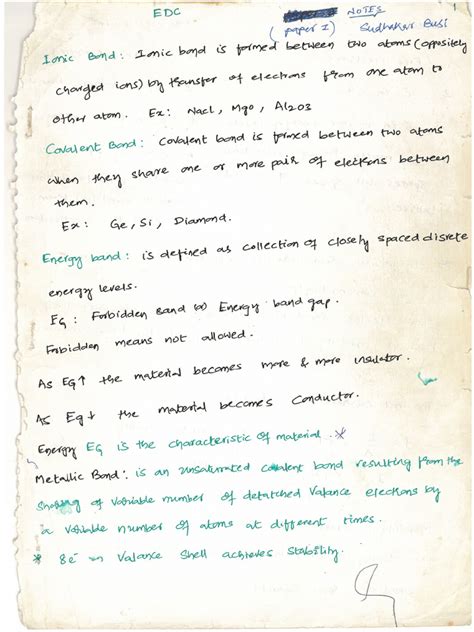 EDC NOTES 1
(paper I) Sudhakar Busi
Ionic Bond: Ionic bond is formed between two atoms (oppositely
charged ions) by transfer of electrons from one atom to
other atom. Ex: Nacl, Mgo, Al2O3
Covalent Bond: Covalent bond is formed between two atoms
when they share one or more pair of electrons between
them.
Ex: Ge, Si, Diamond.
Energy band: is defined as collection of closely spaced discrete
energy levels.
EG: Forbidden Band (or) Energy band gap.
Forbidden means not allowed.
As EG↑ the material becomes more & more insulator.
As EG↓ the material becomes Conductor.
Energy EG is the characteristic of material.
Metallic Bond: is an unsaturated covalent bond resulting from the
sharing of variable number of detatched valance electrons by
a variable number of atoms at different times.
* 8e⁻ in Valance Shell achieves stability.